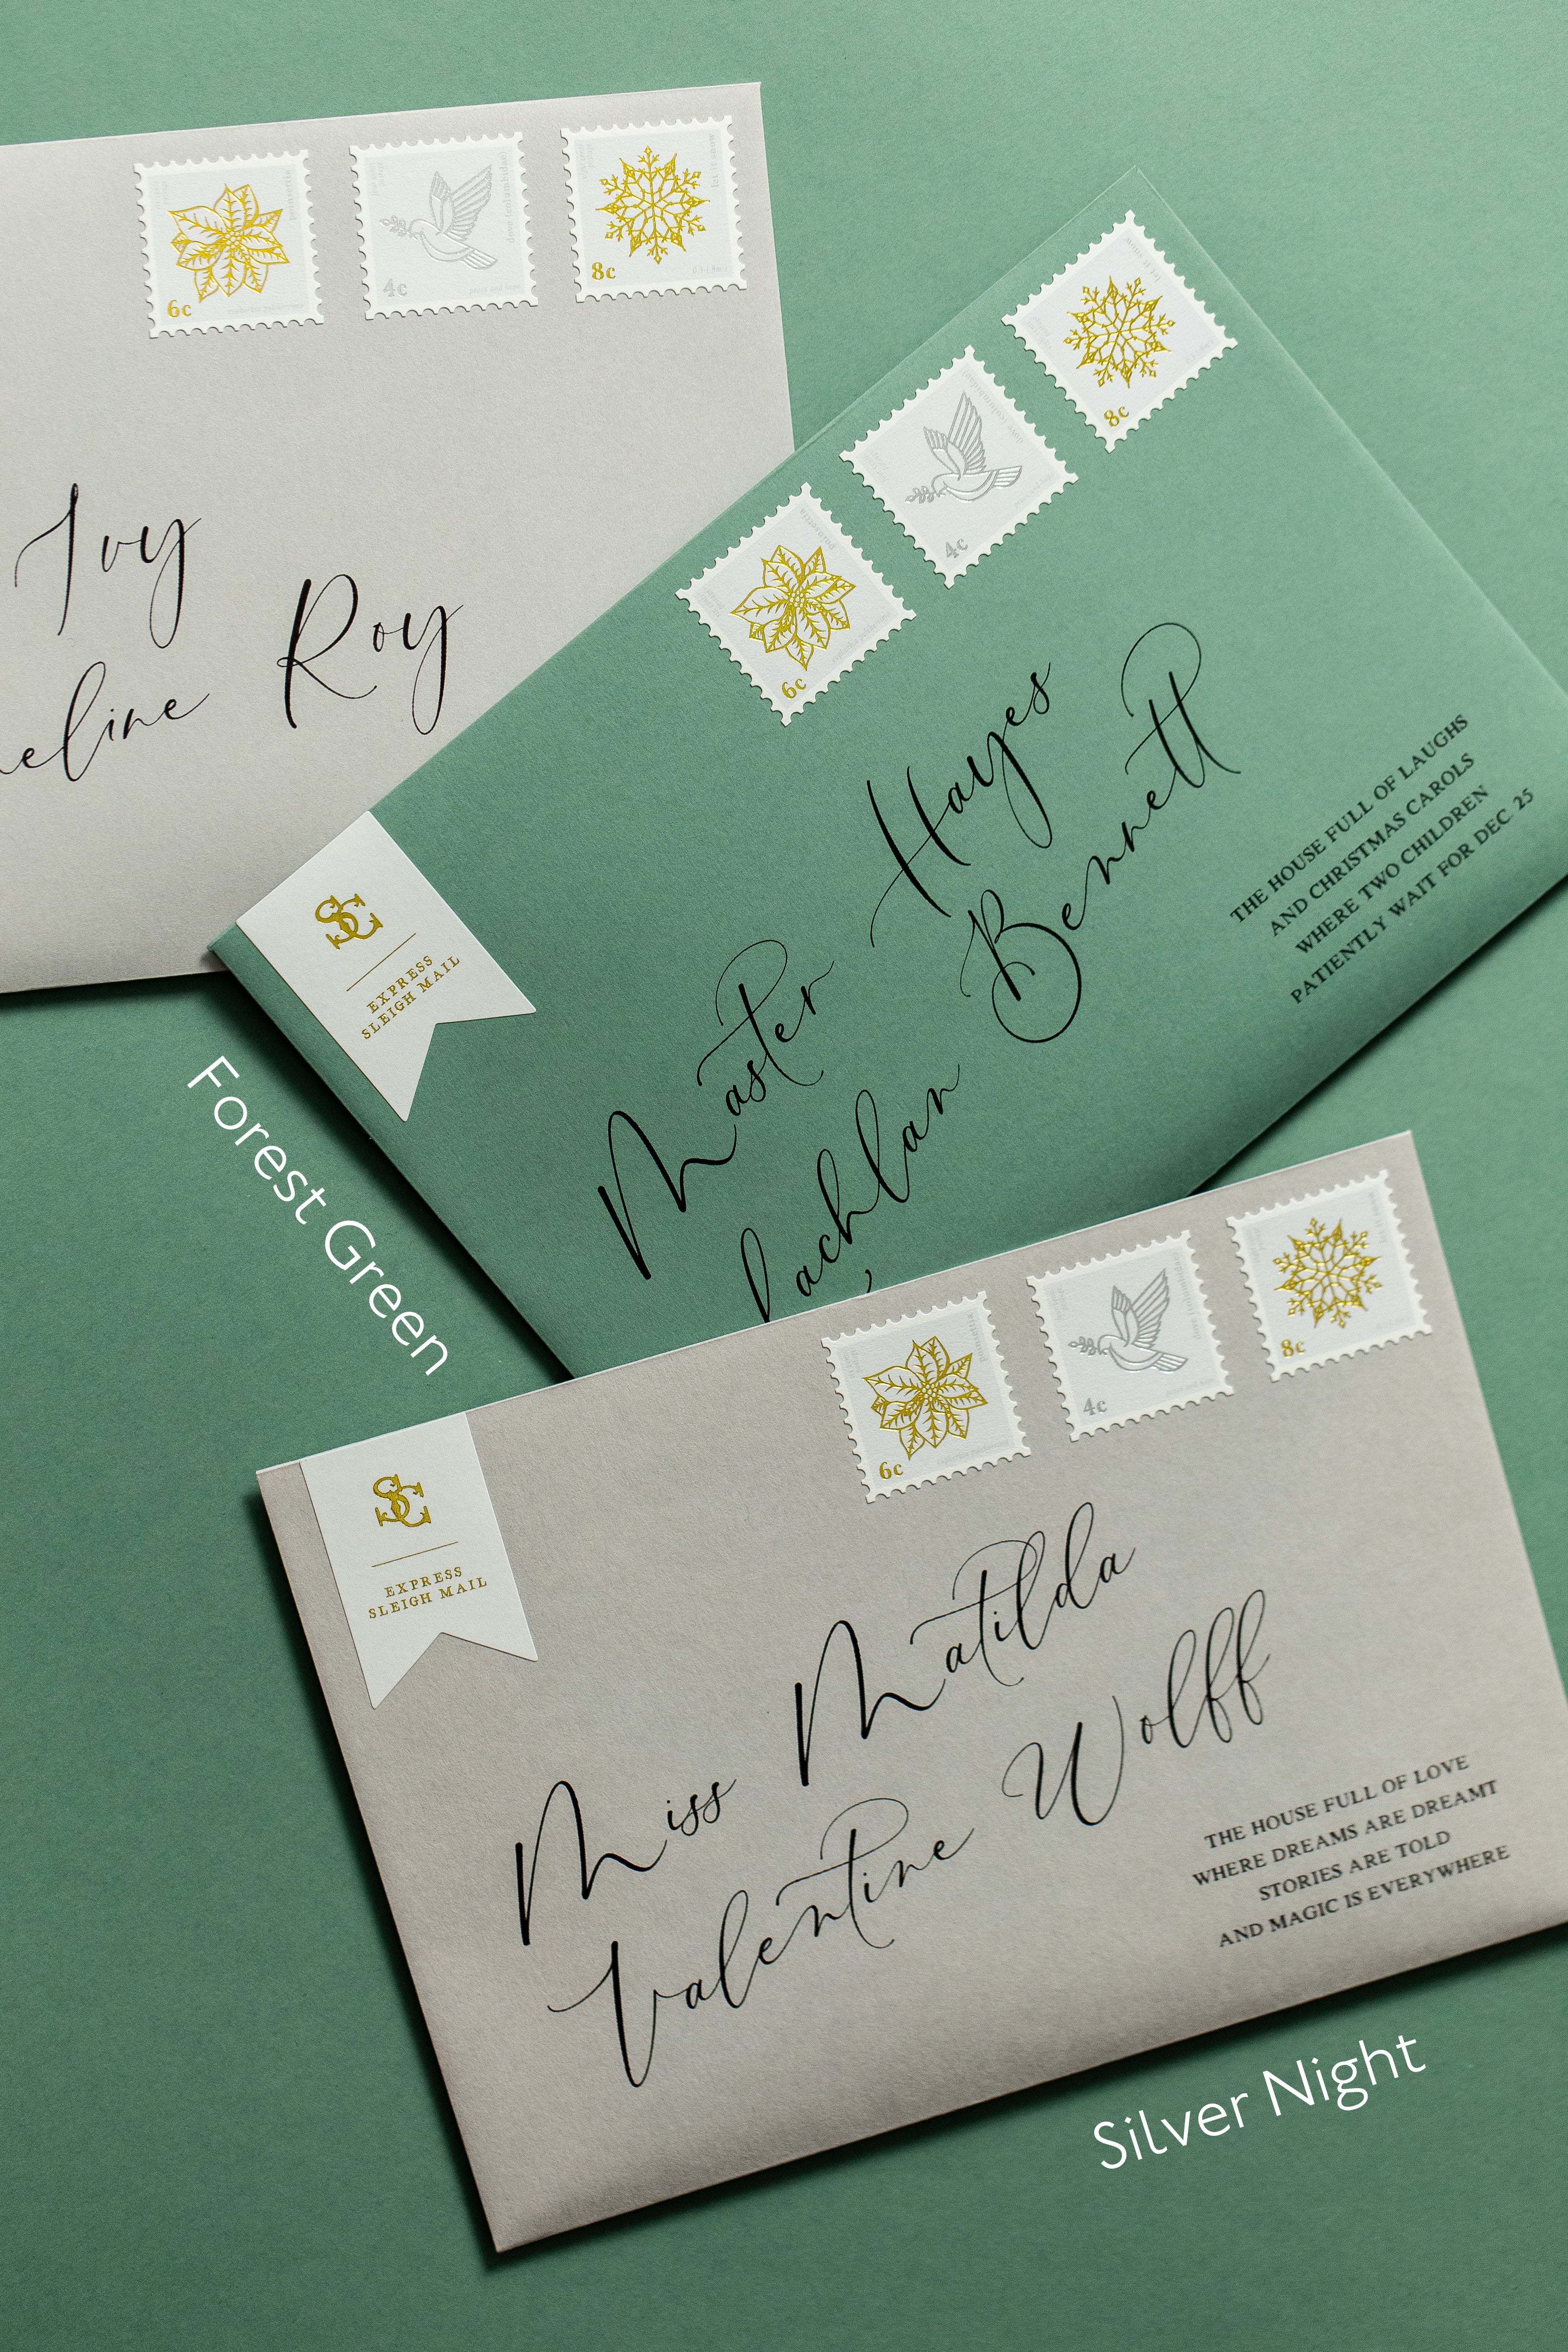 poinsettia
6c
4c
let it snow
8c
Ivy
eline Roy
6c
4c
8c
SC
EXPRESS
SLEIGH MAIL
Master Hayes
Lachlan Bennett
THE HOUSE FULL OF LAUGHS
AND CHRISTMAS CAROLS
WHERE TWO CHILDREN
PATIENTLY WAIT FOR DEC 25
Forest Green
poinsettia
6c
4c
8c
SC
EXPRESS
SLEIGH MAIL
Miss Matilda
Valentine Wolff
THE HOUSE FULL OF LOVE
WHERE DREAMS ARE DREAMT
STORIES ARE TOLD
AND MAGIC IS EVERYWHERE
Silver Night